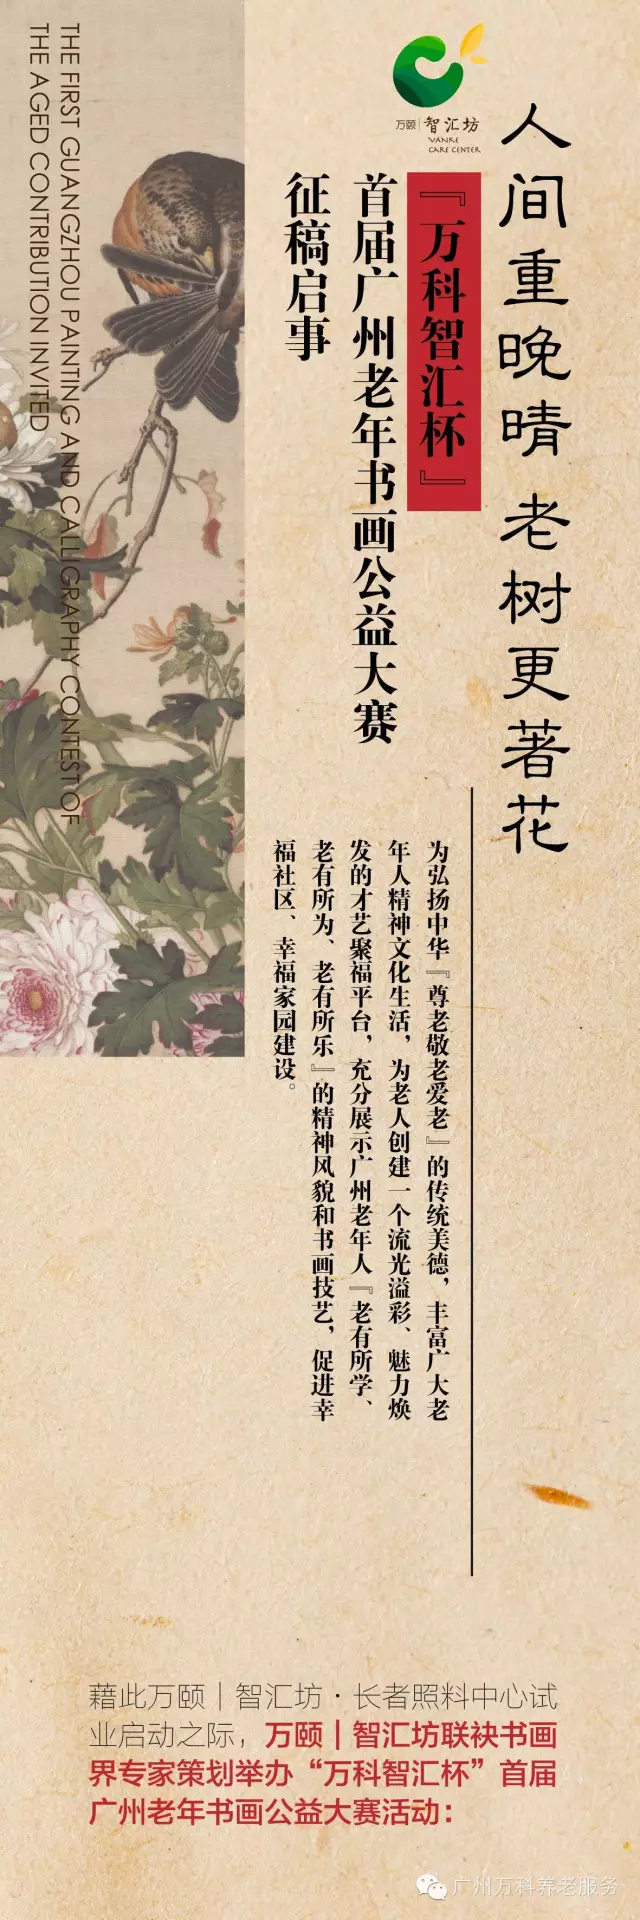 万颐|智汇坊
VANKE
CARE CENTER
人间重晚晴 老树更著花
『万科智汇杯』
首届广州老年书画公益大赛
征稿启事
THE FIRST GUANGZHOU PAINTING AND CALLIGRAPHY CONTEST OF
THE AGED CONTRIBUTION INVITED
为弘扬中华『尊老敬老爱老』的传统美德，丰富广大老
年人精神文化生活，为老人创建一个流光溢彩、魅力焕
发的才艺聚福平台，充分展示广州老年人『老有所学、
老有所为、老有所乐』的精神风貌和书画技艺，促进幸
福社区、幸福家园建设。
藉此万颐｜智汇坊·长者照料中心试
业启动之际，万颐｜智汇坊联袂书画
界专家策划举办“万科智汇杯”首届
广州老年书画公益大赛活动：
广州万科养老服务